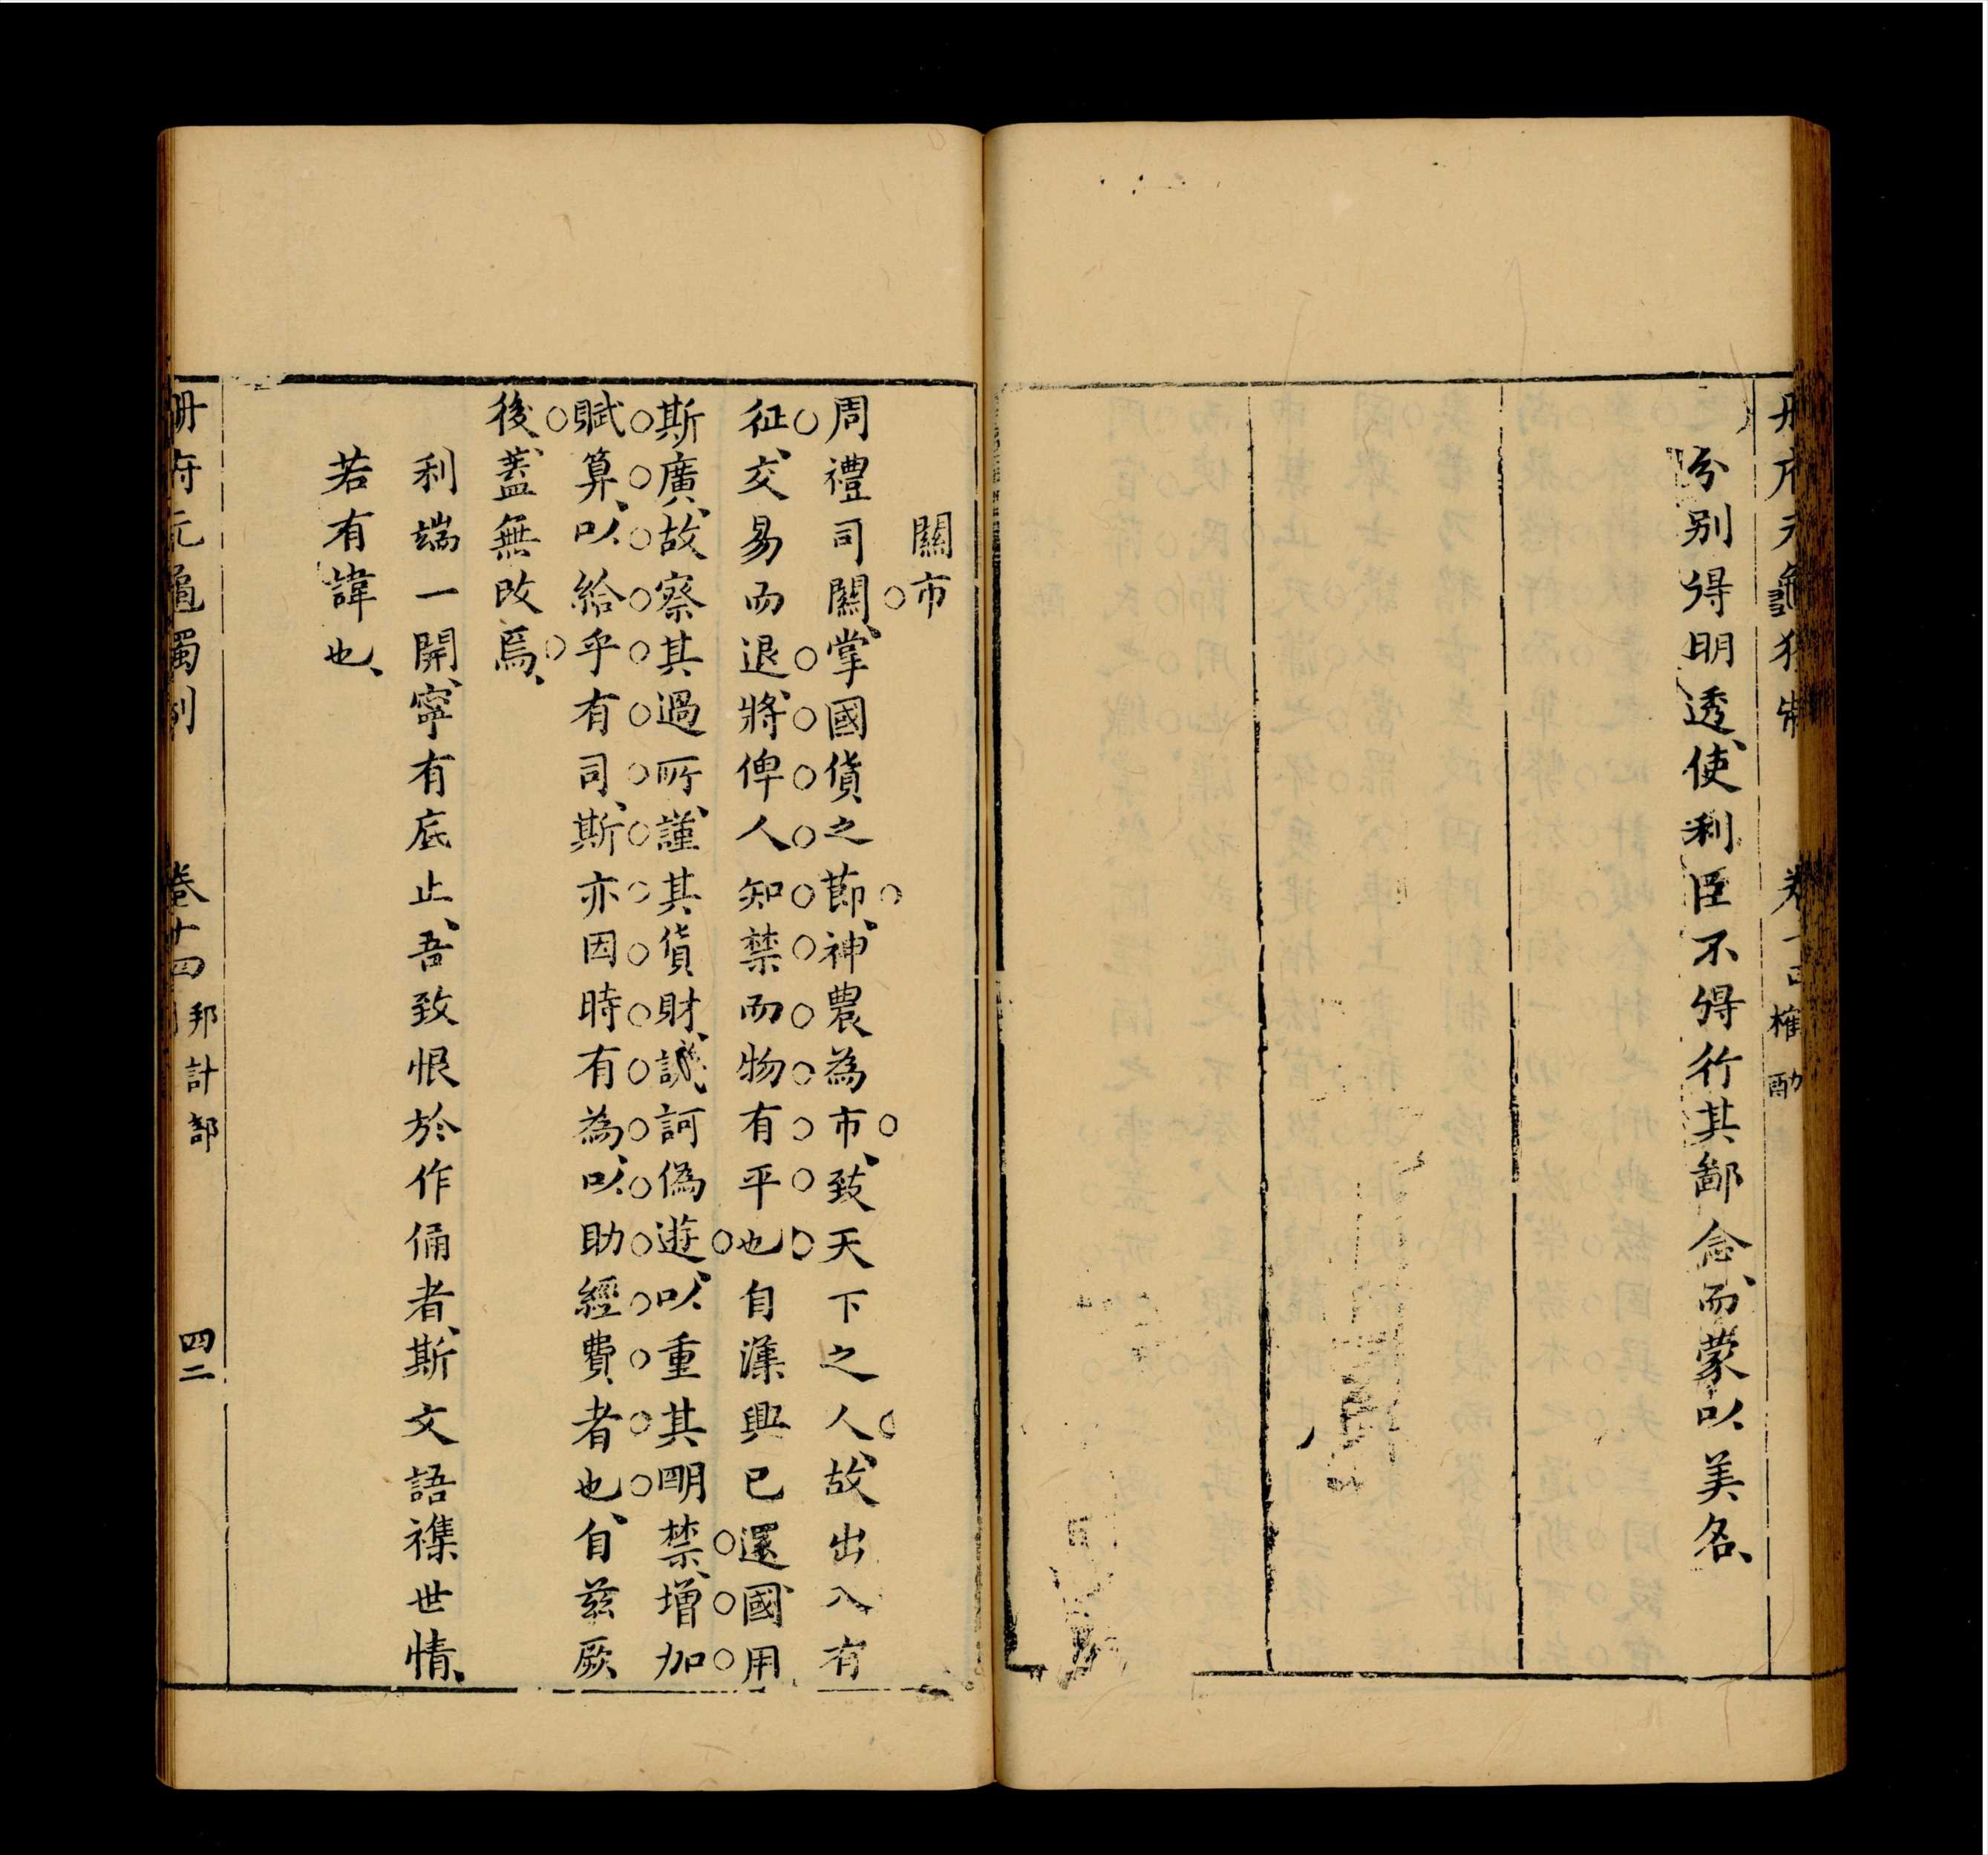 分别得明透、使利臣不得行其鄙念、而蒙以美名、
榷酤
關市
周禮司關、掌國貨之節、神農為市、致天下之人、故出入有
征、交易而退、將俾人知禁而物有平也自漢興已還國用
斯廣、故察其過所、謹其貨財、譏訶偽遊、以重其明禁、增加
賦算、以給乎有司、斯亦因時有為、以助經費者也、自茲厥
後、蓋無改焉、
利端一開、寧有底止、吾致恨於作俑者、斯文語襍世情、
若有諱也、
冊府元龜獨制
卷十四
邦計部
四二